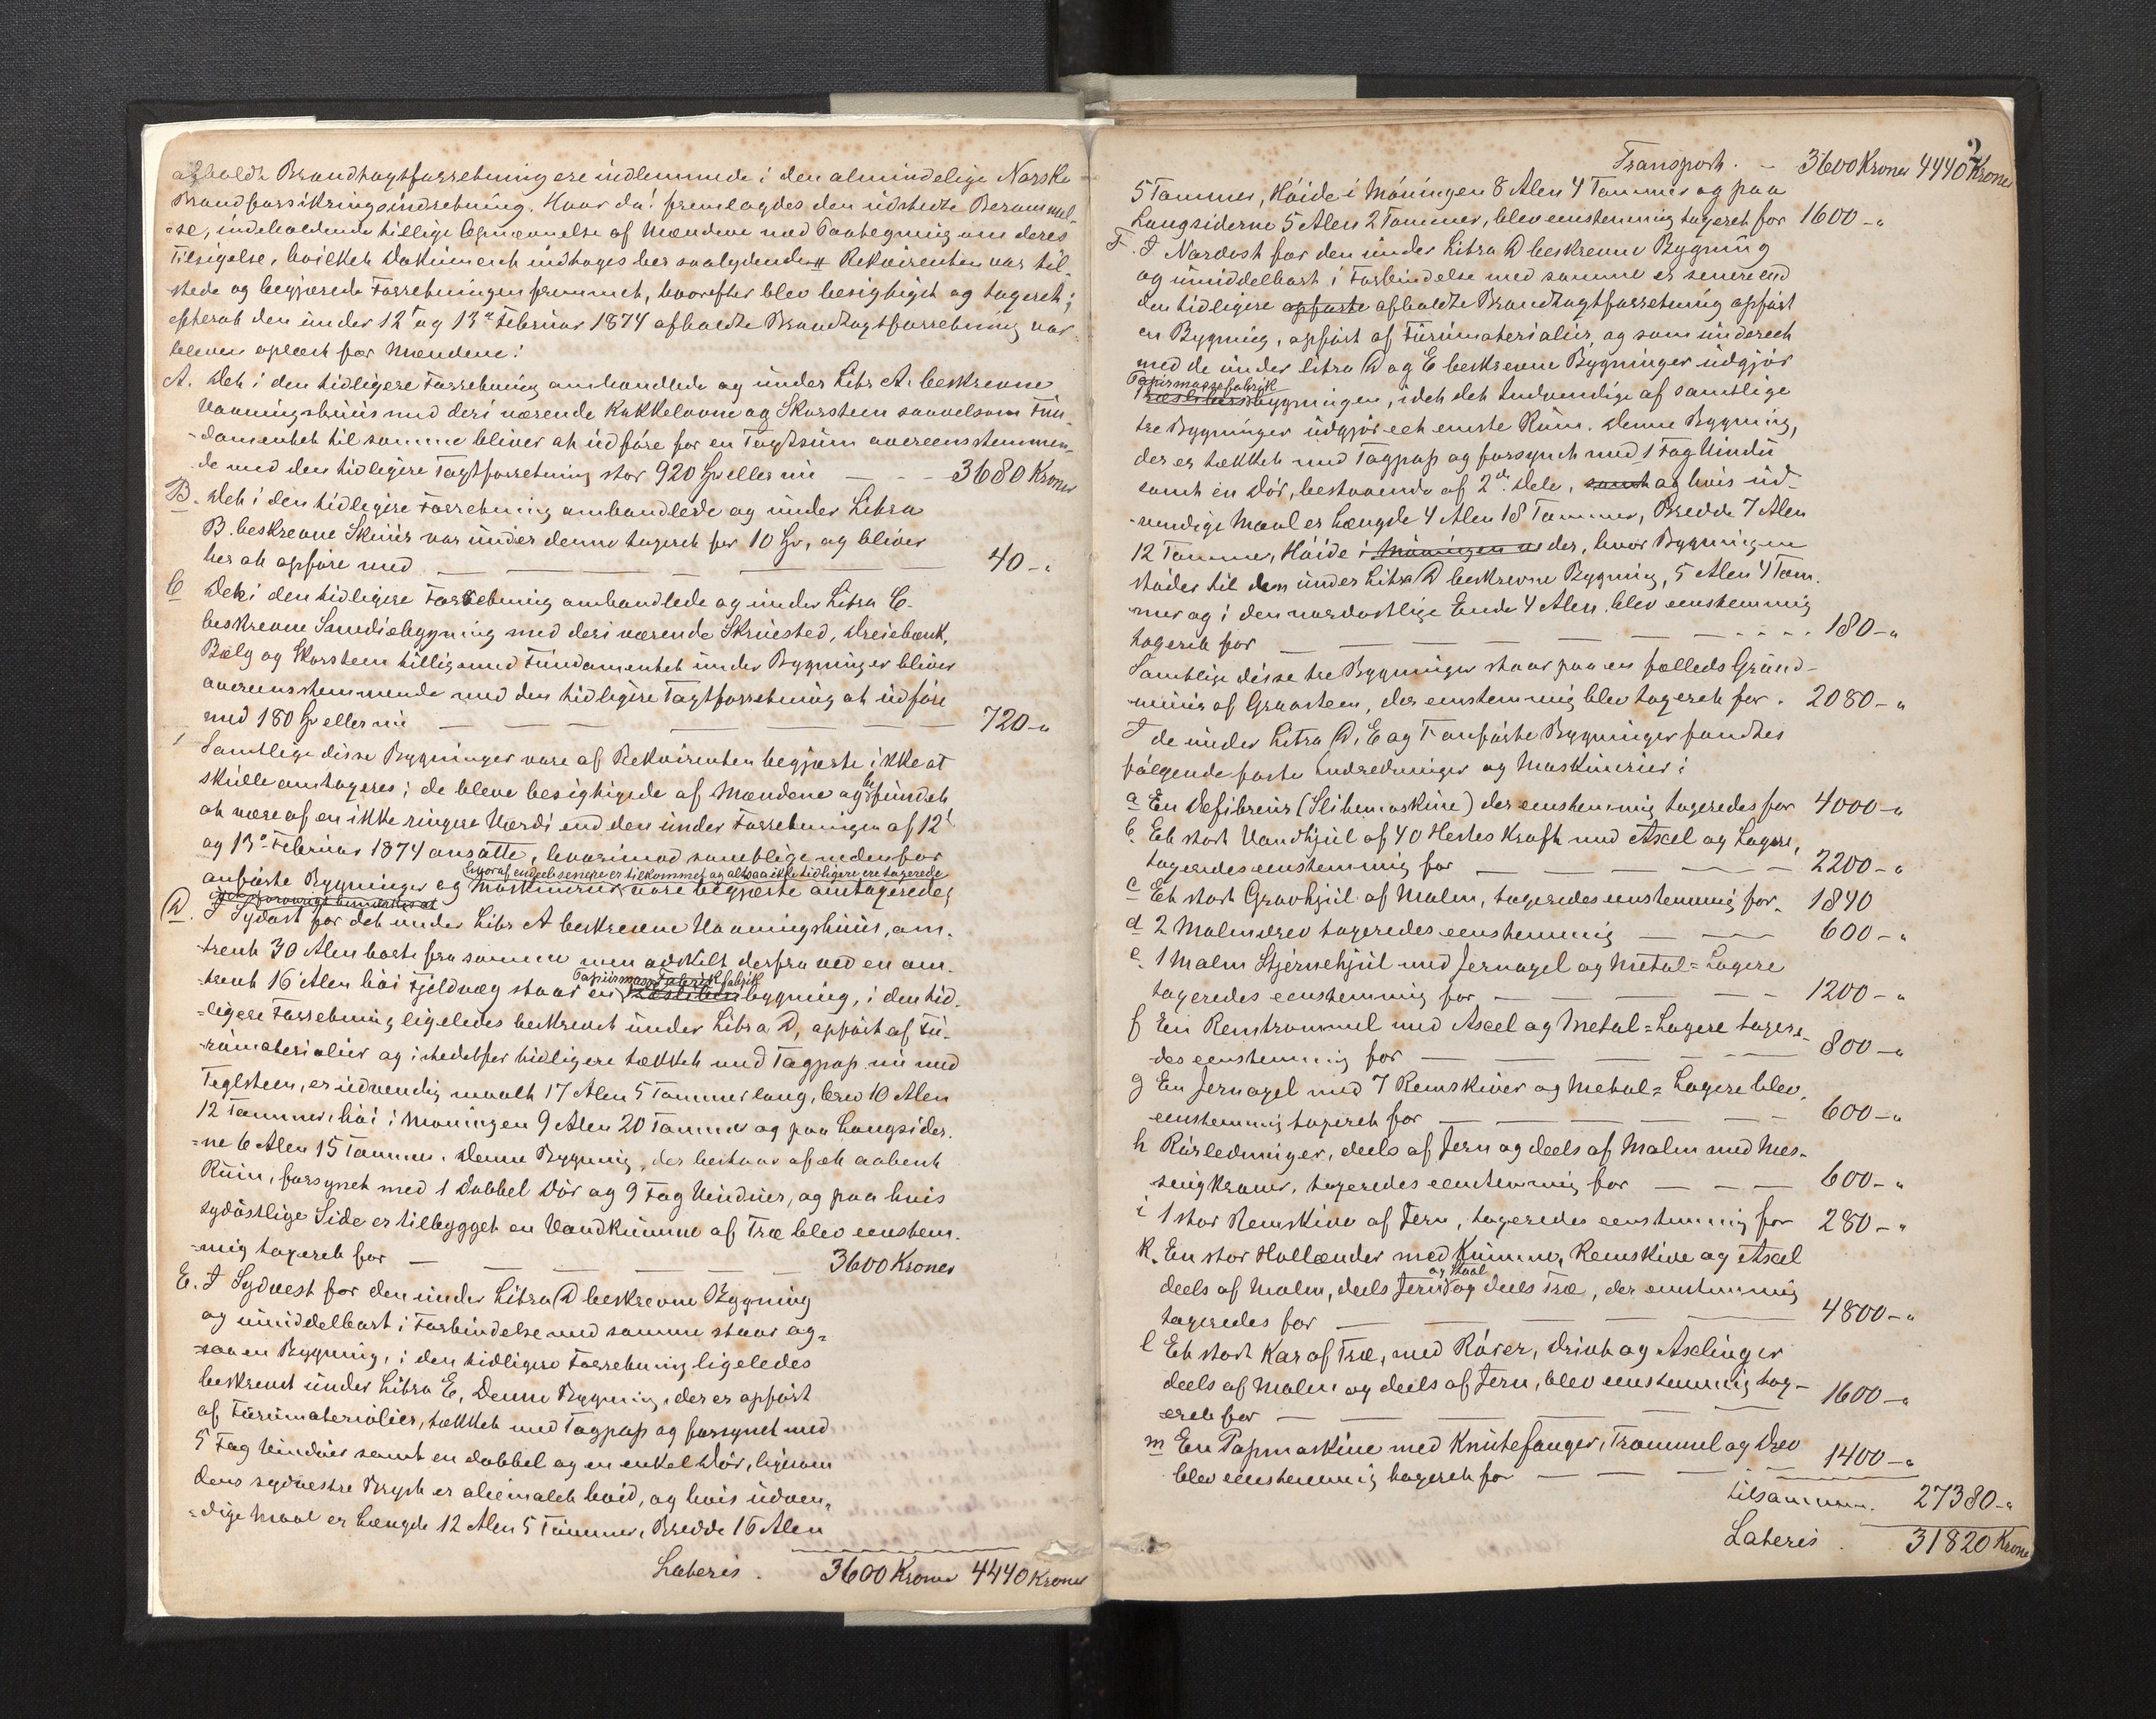 afholdt Brandtagtforretning ere indlemmede i den almindelige Norske
Brandforsikringsindretning. Hvor da! fremlagdes den udstedte Berammel-
-se, indeholdende tillige Opnævnelse af Mændene med Paategning om deres
Tilsigelse, hvilket Dokument indtages her saalydende # Rekvirenten var til-
stede og begjærede Forretningen fremmet, hvorefter blev besigtiget og taxeret;
efterat den under 12te og 13de Februar 1874 afholdte Brandtagtforretning var
bleven oplæst for Mændene:
A. Det i den tidligere Forretning omhandlede og under Litr A. beskrevne
Vaaningshuus med deri værende Kakkelovne og Skorsteen saavelsom Fun-
-damentet til samme bliver at udføre for en Taxtsum overeensstemmen-
de med den tidligere Taxtforretning stor 920 Spd eller nu — - - 3680 Kroner
B. Det i den tidligere Forretning omhandlede og under Litra
B. beskrevne Skuur var under denne taxeret for 10 Spd, og bliver
her at opføre med — — — 40 - "
C Det i den tidligere Forretning omhandlede og under Litra C.
beskrevne Smediebygning med deri værende Skruested, Dreiebænk,
Bælg og Skorsteen tilligemed Fundamentet under Bygningen bliver
overeensstemmende med den tidligere Taxtforretning at udføre
med 180 Spd eller nu — — — — — 720 - "
Samtlige disse Bygninger vare af Rekvirenten begjærte ikke at
skulle omtaxeres; de bleve besigtigede af Mændene og befundet
at være af en ikke ringere Værdi end den under Forretningen af 12te
og 13de Februar 1874 ansatte, hvorimod samtlige nedenfor
hvoraf endeel senere er tilkommet og altsaa ikke tidligere ere taxerede
anførte Bygninger og Maskinerier vare begjærte omtaxerede;
D. I Sydost for det under Litr A beskrevne Vaaningshuus, om-
-trent 30 Alen borte fra samme men adskilt derfra ved en om-
Papiirmassefabrik
-trent 16 Alen høi Fjeldvæg staar en Træsliberibygning, i den tid-
-ligere Forretning ligeledes beskrevet under Litra D, opført af Fu-
-rumaterialier og istedetfor tidligere tækket med Tagpap nu med
Teglsteen, er udvendig maalt 17 Alen 5 Tommer lang, bred 10 Alen
12 Tommer, høi i Møningen 9 Alen 20 Tommer og paa Langsider-
-ne 6 Alen 15 Tommer. Denne Bygning, der bestaar af et aabent
Rum, forsynet med 1 dobbel Dør og 9 Fag Vinduer, og paa hvis
sydøstlige Side er tilbygget en Vandkumme af Træ blev eenstem-
-mig taxeret for — — — — — 3600 Kroner
E. I Sydvest for den under Litra D beskrevne Bygning
og umiddelbart i Forbindelse med samme staar og-
-saa en Bygning, i den tidligere Forretning ligeledes
beskrevet under Litra E, Denne Bygning, der er opført
af Furumaterialier, tækket med Tagpap og forsynet med
5 Fag Vinduer samt en dobbel og en enkel Dør, ligesom
dens sydvestre Bryst er oliemalet hvid, og hvis udven-
-dige Maal er Længde 12 Alen 5 Tommer, Bredde 16 Alen
Lateris . 3600 Kroner 4440 Kroner
2
Transport. - 3600 Kroner 4440 Kroner
5 Tommer, Høide i Møningen 8 Alen 4 Tommer og paa
Langsiderne 5 Alen 2 Tommer, blev eenstemmig taxeret for 1600 - "
F. I Nordost for den under Litra D beskrevne Bygning
og umiddelbart i Forbindelse med samme er senere end
den tidligere opførte afholdte Brandtagtforretning opført
en Bygning, opført af Furumaterialier, og som underet
med de under Litra D og E beskrevne Bygninger udgjør
Papirmassefabrik
Træsliberibygningen, idet det Indvendige af samtlige
tre Bygninger udgjør eet eneste Rum. Denne Bygning,
der er tækket med Tagpap og forsynet med 1 Fag Vindu
samt en Dør, bestaaende af 2de Dele, samt og hvis ud-
-vendige Maal er Længde 4 Alen 18 Tommer, Bredde 7 Alen
12 Tommer, Høide i Møningen der, hvor Bygningen
støder til den under Litra D beskrevne Bygning, 5 Alen 4 Tom-
-mer og i den nordostlige Ende 4 Alen. blev eenstemmig
taxeret for — — — — — 180 - "
Samtlige disse tre Bygninger staar paa en fælleds Grund-
-muur af Graasteen, der eenstemmig blev taxeret for . 2080 - "
I de under Litra D, E og F anførte Bygninger fandtes
følgende faste Indretninger og Maskinerier:
a En Defibreur (Slibemaskine) der eenstemmig taxeredes for 4000 - "
b. Et stort Vandhjul af 40 Hestes Kraft med Axel og Lagere,
taxeredes eenstemmig for — — — 2200 - "
c Et stort Grovhjul af Malm, taxeredes eenstemmig for. 1840
d 2 Malmdrev taxeredes eenstemmig — — 600 - "
e. 1 Malm Stjernehjul med Jernaxel og Metal=Lagere
taxeredes eenstemmig for — — — 1200 - "
f En Remtrommel med Axel og Metal=Lagere taxere-
des eenstemmig for — — — — 800 - "
g En Jernaxel med 7 Remskiver og Metal=Lagere blev,
eenstemmig taxeret for — — — — 600 - "
h Rørledninger, deels af Jern og deels af Malm med Mes-
singkraner, taxeredes eenstemmig for — — — 600 - "
i 1 stor Remskive af Jern, taxeredes eenstemmig for 280 - "
k. En stor Hollænder med Kumme, Remskive og Axel
og Staal
deels af Malm, deels Jern og deels Træ, der eenstemmig
taxeredes for — — — — 4800 - "
l Et stort Kar af Træ, med Rører, Drivt og Axelinger
deels af Malm og deels af Jern, blev eenstemmig tax-
eret for — — — — — 1600 - "
m En Papmaskine med Knutefanger, Trommel og Drev
blev eenstemmig taxeret for — — — 1400 - "
tilsammen. 27380 - "
Lateris . 31820 Kroner